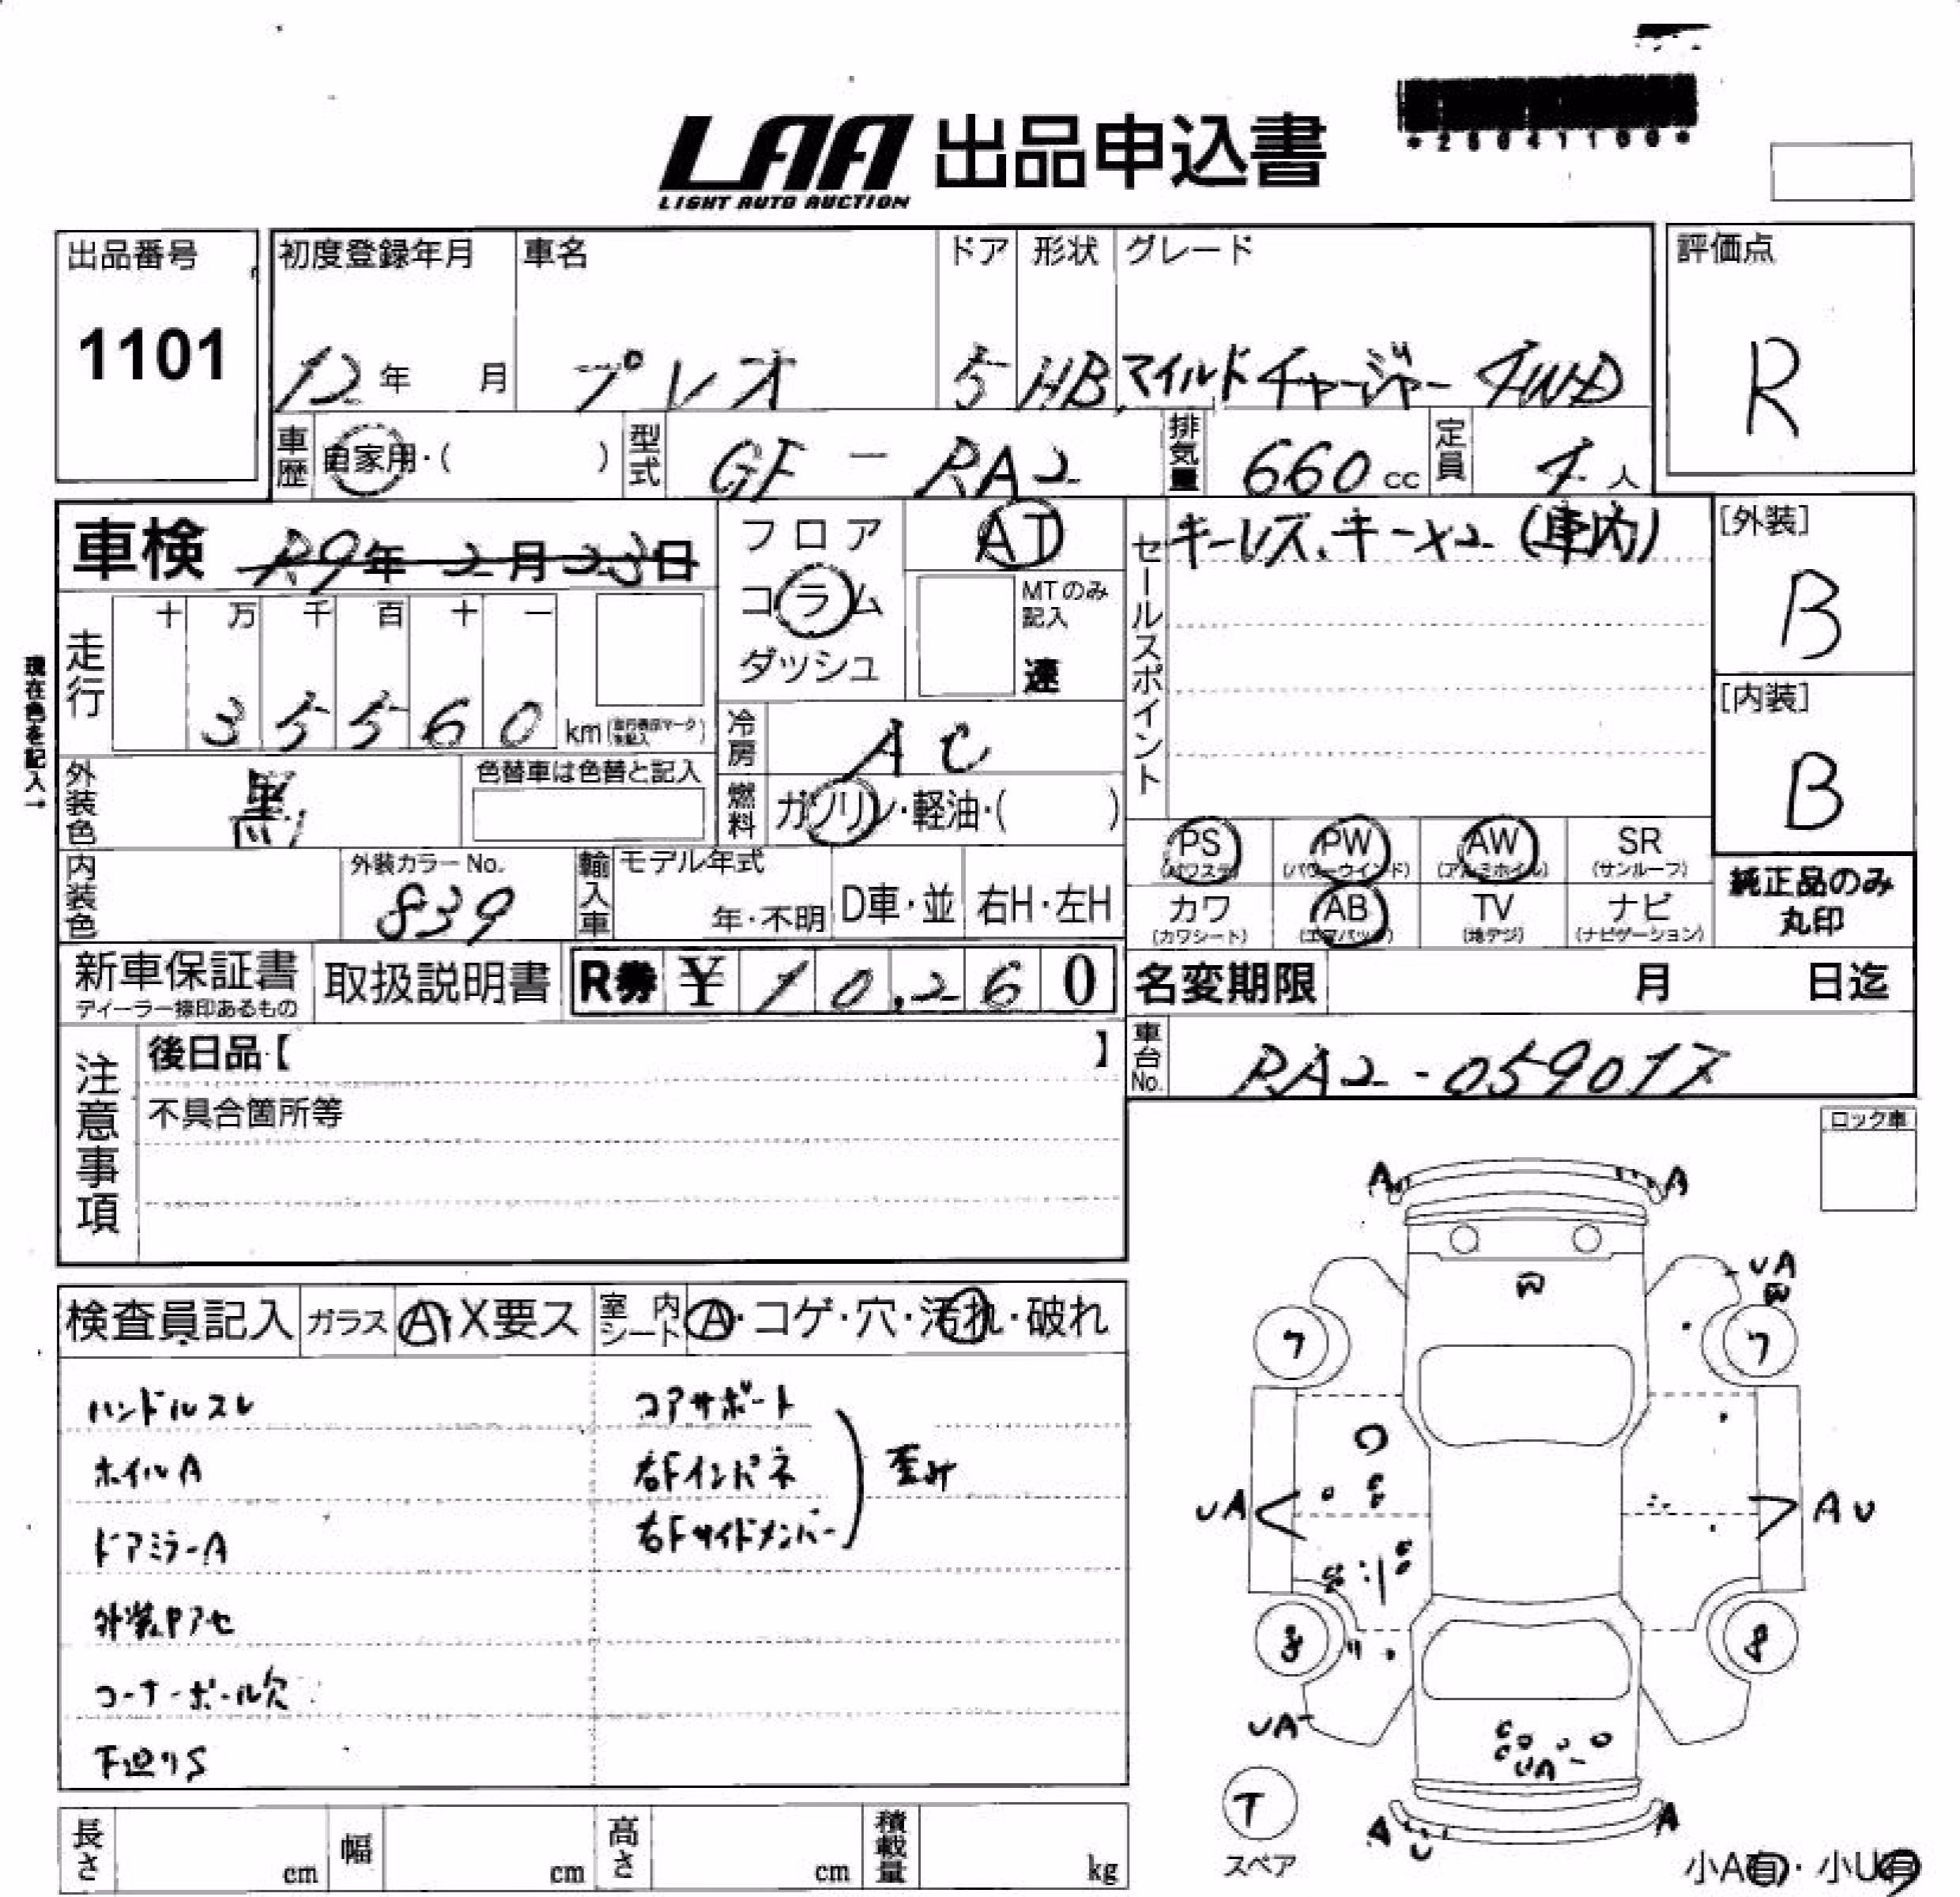 LAA 出品申込書
LIGHT AUTO AUCTION
出品番号
1101
初度登録年月
12年 月
車名
プレオ
ドア
5
形状
HB
グレード
マイルドチャージャー 4WD
評価点
R
車歴 自家用・( )
型式 GF - RA2
排気量 660 cc
定員 4 人
車検 R9年 2月 23日
フロア
コラム
ダッシュ
AT
MTのみ
記入
速
セールスポイント
キーレス、キーx2 (車内)
[外装]
B
[内装]
B
現在色を記入→
走行
十 万 千 百 十 一
3 5 5 6 0 km
冷房 AC
燃料 ガソリン・軽油・( )
外装色 黒
色替車は色替と記入
PS (パワステ)
PW (パワーウインド)
AW (アルミホイル)
SR (サンルーフ)
カワ (カワシート)
AB (エアバッグ)
TV (地デジ)
ナビ (ナビゲーション)
純正品のみ
丸印
内装色
外装カラーNo.
839
輸入車
モデル年式
年・不明
D車・並
右H・左H
新車保証書
ディーラー捺印あるもの
取扱説明書
R券 ¥ 10,260
名変期限 月 日迄
車台No. RA2-059017
注意事項
後日品【 】
不具合箇所等
ロック車
検査員記入
ガラス A・X要ス
室内シート A・コゲ・穴・汚れ・破れ
ハンドルスレ
ホイルA
ドアミラーA
外装ヤアセ
コーナーポール穴
下廻りS
コアサポート
右Fインパネ
右Fサイドメンバー
歪み
A A
UA
W
W
7 7
UA
AU
8 8
UA
UA
T
スペア
A U A
小A有・小U有
長さ cm
幅 cm
高さ cm
積載量 kg